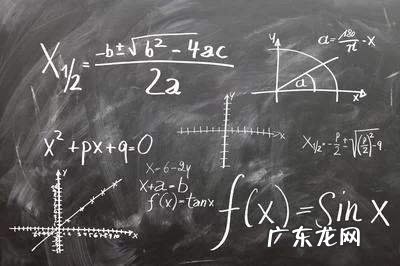 X₁/₂ = (-b±√(b²-4ac))/2a
a = 180/π · x
y
x
a
x² + px + q = 0
y
x
X₁/₂ = -p/2 ± √((p/2)² - q)
x = 6 - 2y
x + a = b
f(x) = tanx
f(x) = Sin x
y
x
广东龙网